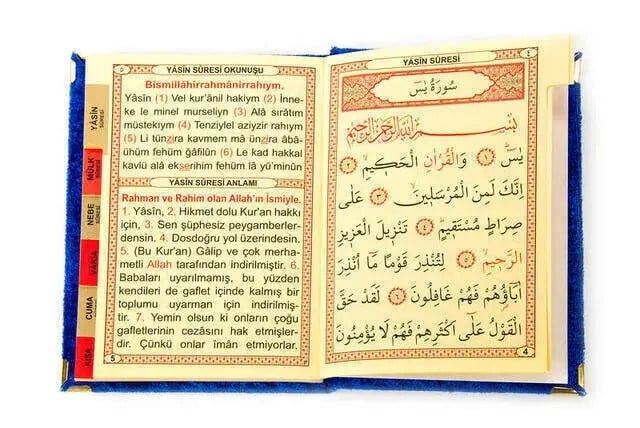 YÂSÎN SÛRESİ
٤
سُورَةُ يٰسٓ
بِسْمِ اللّٰهِ الرَّحْمٰنِ الرَّحِيمِ
يٰسٓ ﴿١﴾ وَالْقُرْاٰنِ الْحَكِيمِ ﴿٢﴾
اِنَّكَ لَمِنَ الْمُرْسَلِينَ ﴿٣﴾ عَلٰى
صِرَاطٍ مُسْتَقِيمٍ ﴿٤﴾ تَنْزِيلَ الْعَزِيزِ
الرَّحِيمِ ﴿٥﴾ لِتُنْذِرَ قَوْمًا مَٓا اُنْذِرَ
اٰبَٓاؤُهُمْ فَهُمْ غَافِلُونَ ﴿٦﴾ لَقَدْ حَقَّ
الْقَوْلُ عَلٰٓى اَكْثَرِهِمْ فَهُمْ لَا يُؤْمِنُونَ
4
٥
YÂSÎN SÛRESİ OKUNUŞU
Bismillâhirrahmânirrahıym.
Yâsîn (1) Vel kur'ânil hakiym (2) İnne-
ke le minel murseliyn (3) Alâ sırâtım
müstekıym (4) Tenziylel aziyzir rahıym
(5) Li tünzira kavmem mâ ünzira âbâ-
ühüm fehüm ğâfilûn (6) Le kad hakkal
kavlü alâ ekserihim fehüm lâ yü'minûn
YÂSÎN SÛRESİ ANLAMI
Rahman ve Rahim olan Allah'ın İsmiyle.
1. Yâsîn, 2. Hikmet dolu Kur'an hakkı
için, 3. Sen şüphesiz peygamberler-
densin. 4. Dosdoğru yol üzerindesin.
5. (Bu Kur'an) Gâlip ve çok merha-
metli Allah tarafından indirilmiştir. 6.
Babaları uyarılmamış, bu yüzden
kendileri de gaflet içinde kalmış bir
toplumu uyarman için indirilmiş-
tir. 7. Yemin olsun ki onların çoğu
gafletlerinin cezasını hak etmişler-
dir. Çünkü onlar îman etmiyorlar.
5
YÂSİN
SÛRESİ
MÜLK
NEBE
SÛRESİ
VAKIA
CUMA
KISA